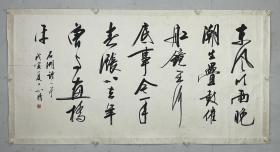 東风吹雨晚
潮生疊鼓催
船鏡里行
底事今年
春漲小去年
曾与画橋
平
石湖诗一首
戊寅夏